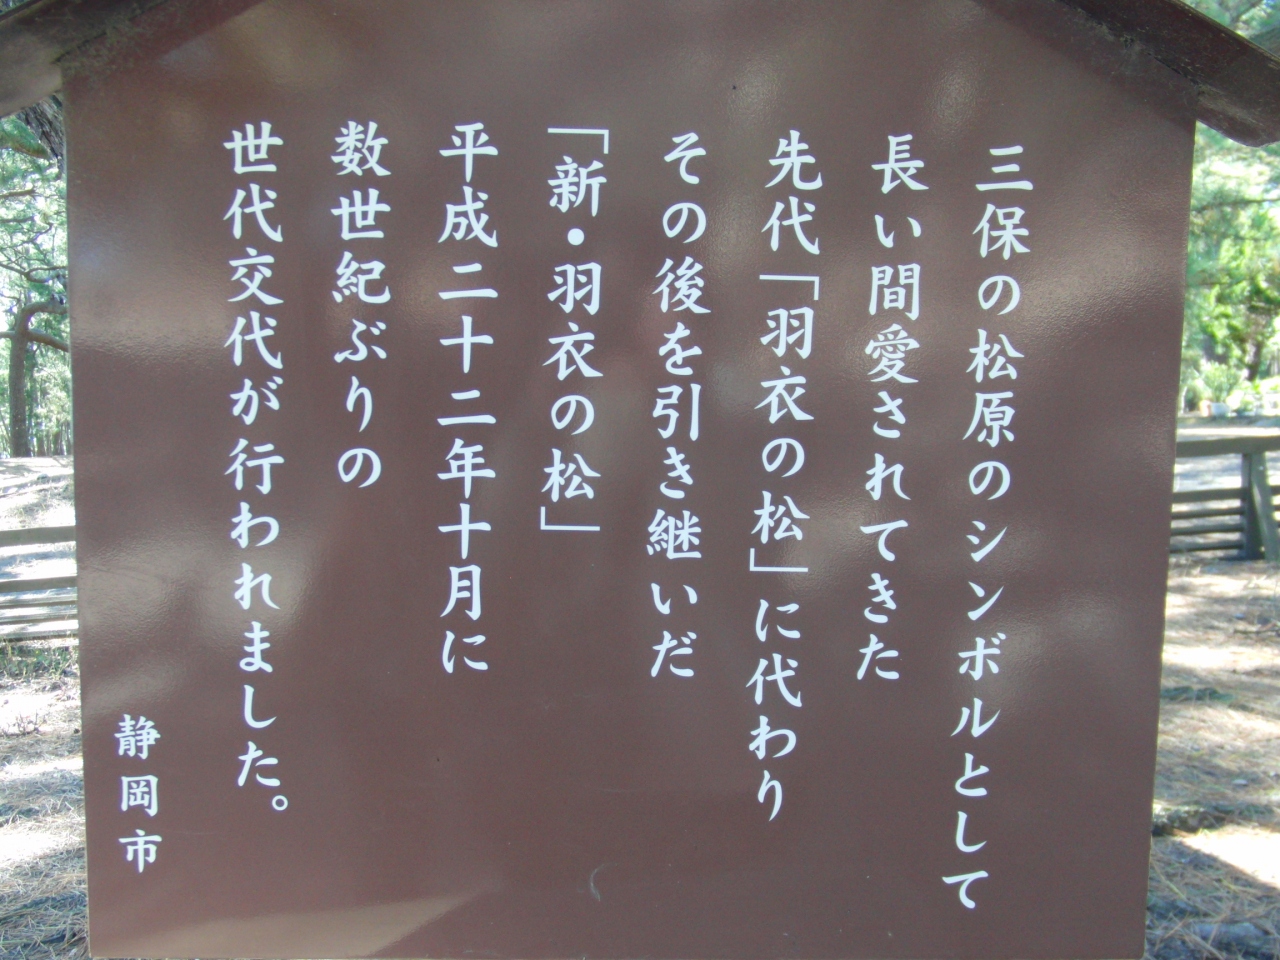 三保の松原のシンボルとして
長い間愛されてきた
先代「羽衣の松」に代わり
その後を引き継いだ
「新・羽衣の松」
平成二十二年十月に
数世紀ぶりの
世代交代が行われました。
静岡市